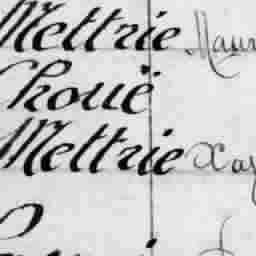 Mettrie Maur
Choüe
Mettrie Xav